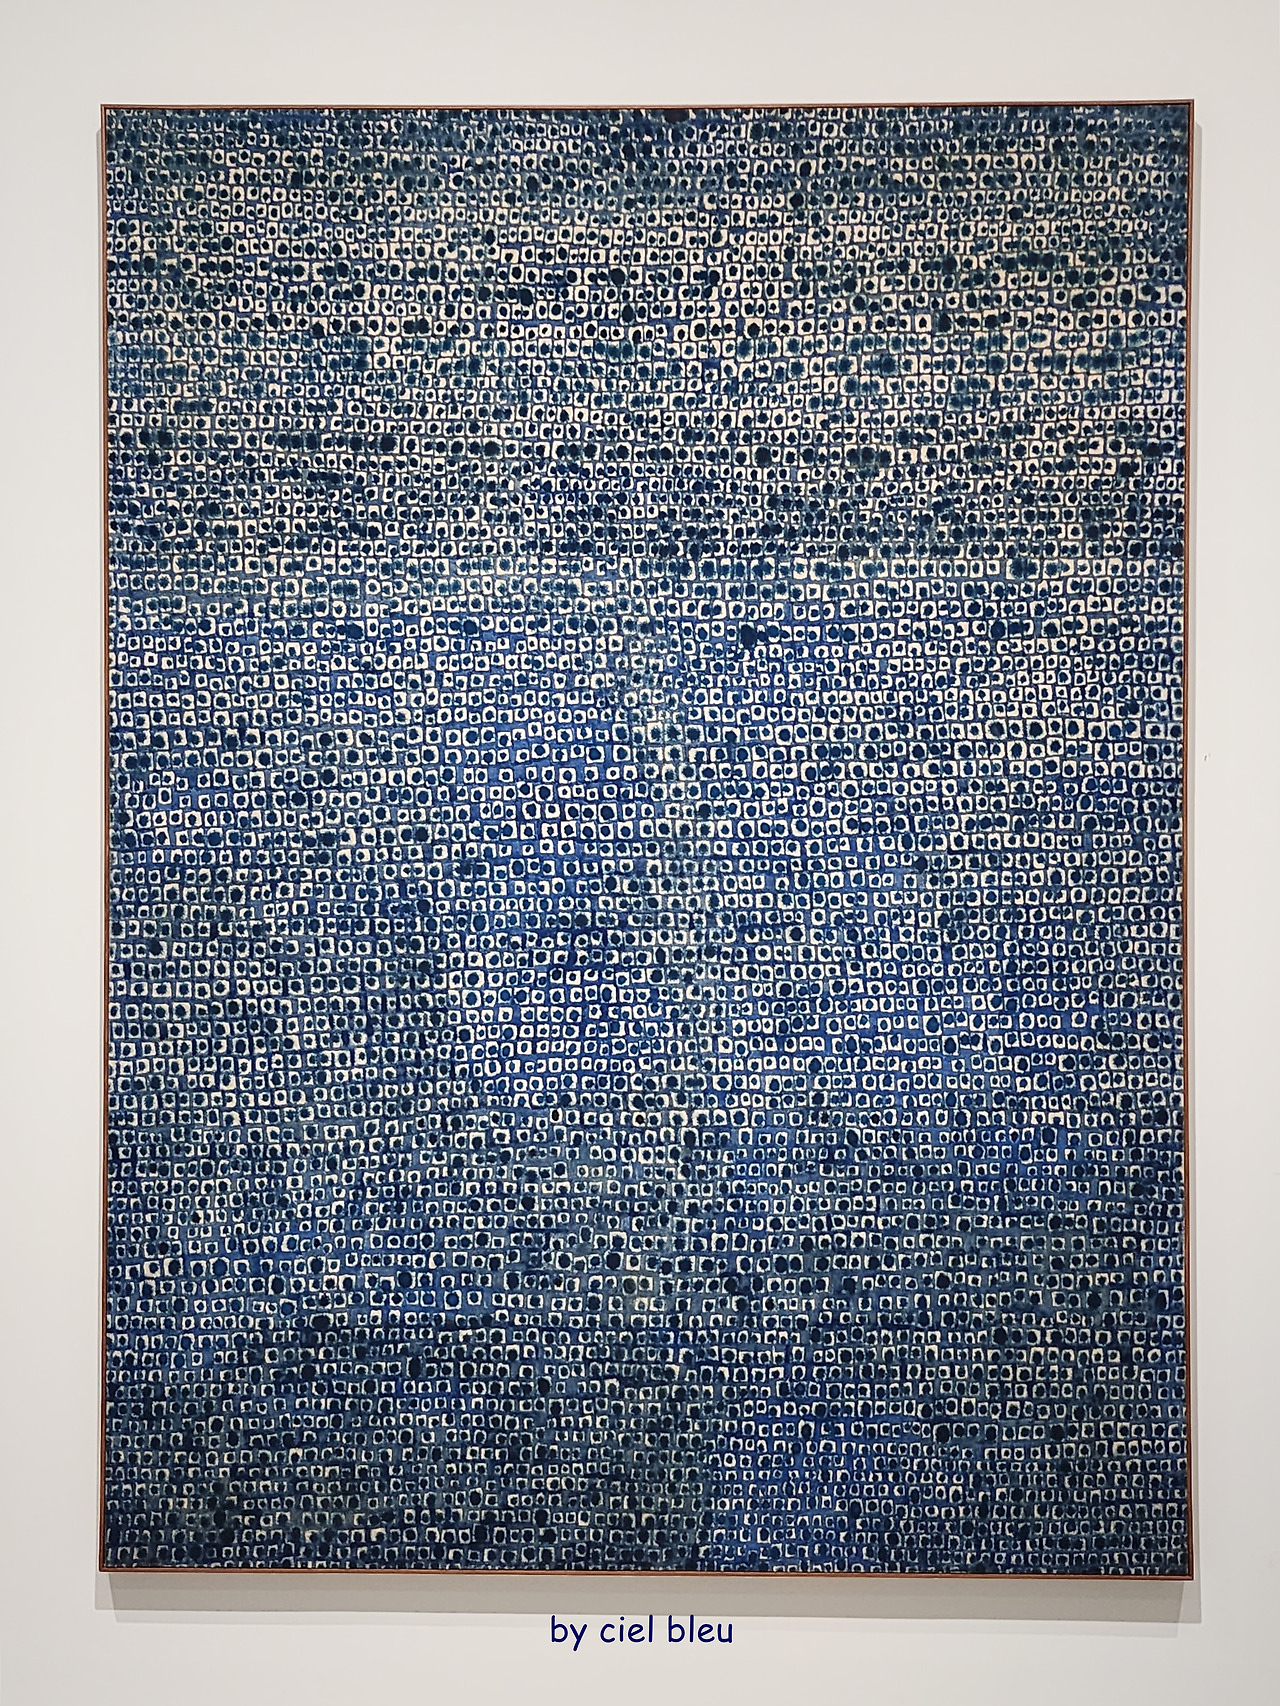 by ciel bleu